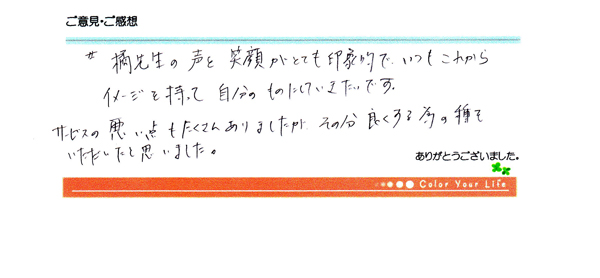 ご意見・ご感想
# 橘先生の声と笑顔がとても印象的で、いつもこれから
イメージを持って自分のものにしていきたいです。
サービスの悪い点もたくさんありましたが、その分良くする為の種を
いただいたと思いました。
ありがとうございました。
Color Your Life